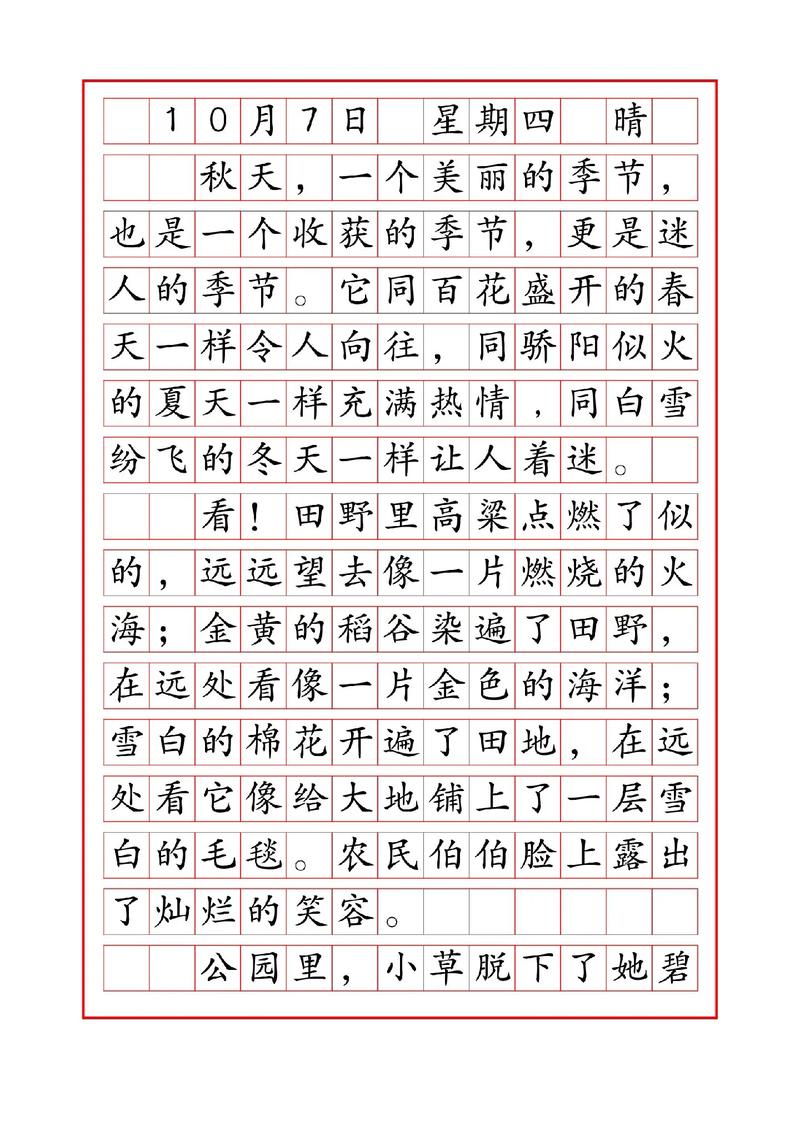 10月7日 星期四 晴
秋天，一个美丽的季节，
也是一个收获的季节，更是迷
人的季节。它同百花盛开的春
天一样令人向往，同骄阳似火
的夏天一样充满热情，同白雪
纷飞的冬天一样让人着迷。
看！田野里高粱点燃了似
的，远远望去像一片燃烧的火
海；金黄的稻谷染遍了田野，
在远处看像一片金色的海洋；
雪白的棉花开遍了田地，在远
处看它像给大地铺上了一层雪
白的毛毯。农民伯伯脸上露出
了灿烂的笑容。
公园里，小草脱下了她碧